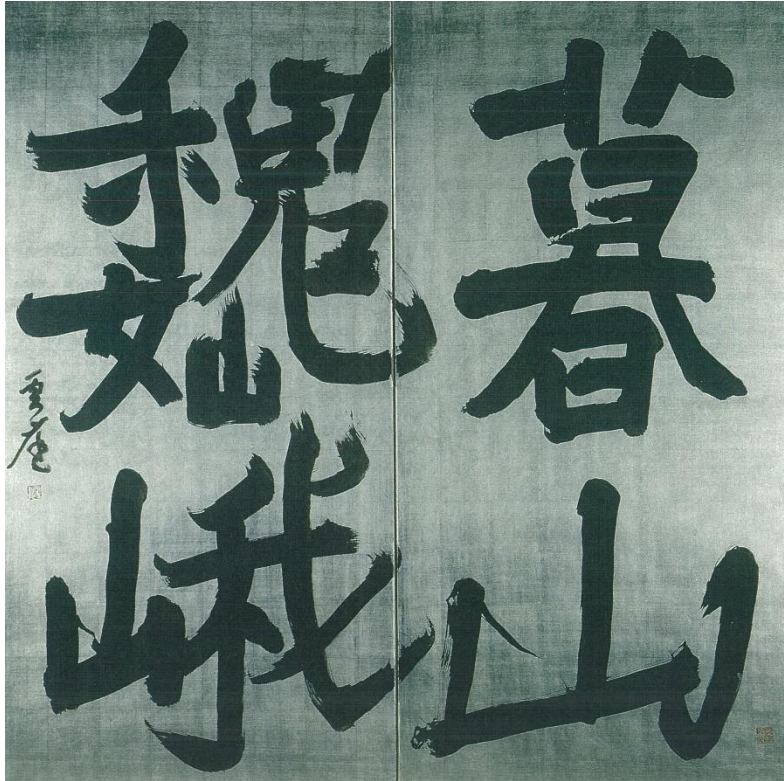 暮山
巍峨